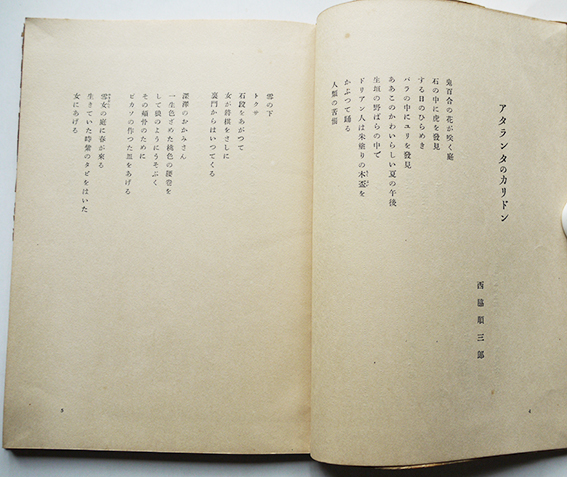 アタランタのカリドン
西脇順三郎
鬼百合の花が咲く庭
石の中に虎を發見
する日のひらめき
バラの中にユリを發見
ああこのかわいらしい夏の午後
生垣の野ばらの中で
ドリアン人は朱塗りの木盃を
かぶつて踊る
人類の苦惱
4
雪の下
トクサ
石段をあがつて
女が將棋をさしに
裏門からはいつてくる
深澤のおかみさん
一生色ざめた桃色の腰卷を
して狼のようにうそぶく
その頬骨のために
ピカソの作つた皿をあげる
雪女の庭に春が來る
生きていた時紫のタビをはいた
女にあげる
5